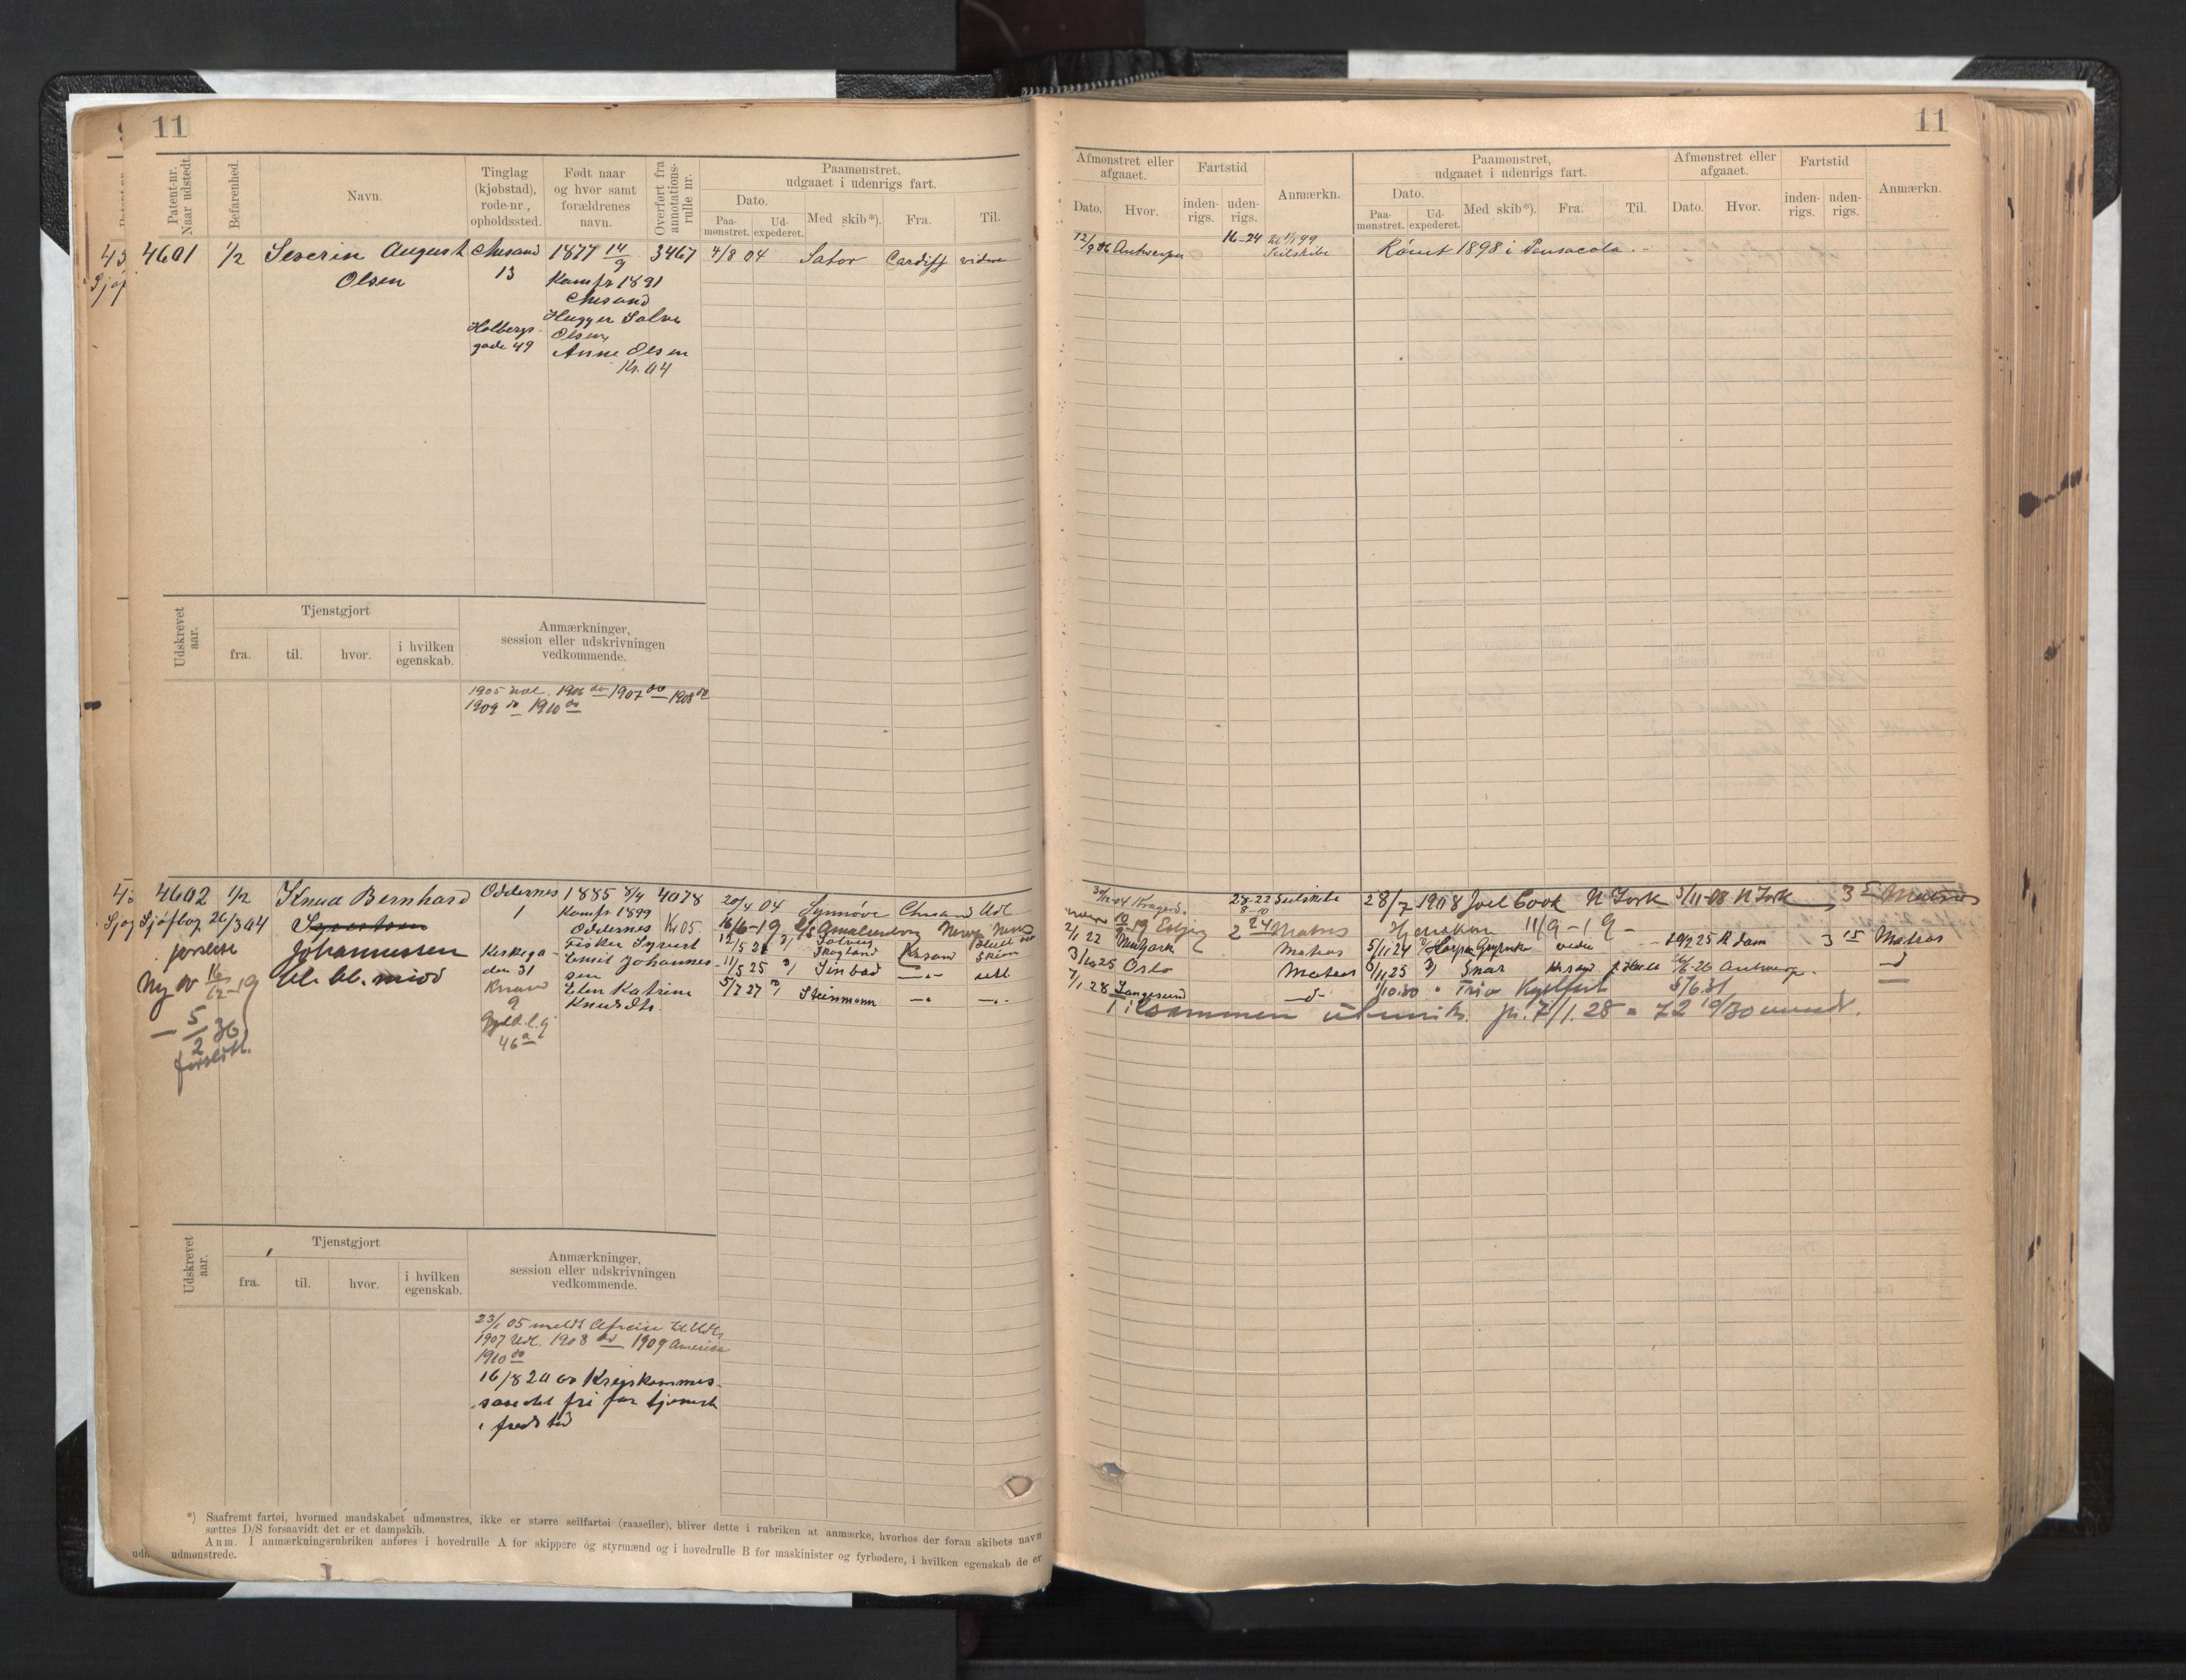 11
Patent-nr. Naar udstedt.
Befarenhed.
Navn.
Tinglag (kjøbstad), rode-nr., opholdssted.
Født naar og hvor samt forældrenes navn.
Overført fra annotations-rulle nr.
Paamønstret, udgaaet i udenrigs fart.
Dato.
Paa-mønstret.
Ud-expederet.
Med skib*).
Fra.
Til.
4601 1/2 Severin August Chrsand 1877 14/9 3467 4/8 04 Sator Cardiff videre
Olsen 13 Kamfr 1891
Chrsand
Holbergs- Hugger Salve
gade 49 Olsen,
Anne Olsen
Kr. 04
Udskrevet aar.
Tjenstgjort
fra.
til.
hvor.
i hvilken egenskab.
Anmærkninger, session eller udskrivningen vedkommende.
1905 udl. 1906 do 1907 do 1908 do
1909 do 1910 do
4602 1/2 Knud Bernhard Oddernes 1885 8/4 4078 20/4 04 Synnøve Chrsand Udl
Sjøfbog 26/3 04 Syvertsen 1 Kamfr 1899
Oddernes Kr 05 16/6-19 Amalienborg
Johannessen Fisker Syvert
Emil Johannes-
sen 11/5 25 Sinbad
den 31 Elen Katrine 5/7 27 Steinmann
Knudsdtr.
Ny av 16/12-19
5/2 36
46 a
Udskrevet aar.
Tjenstgjort
fra.
til.
hvor.
i hvilken egenskab.
Anmærkninger, session eller udskrivningen vedkommende.
23/1 05 meldt Afreise til Udl.
1907 Udl. 1908 do 1909 America
1910 do
16/8 20 av Krigskommis-
sariatet fri for tjeneste
i fredstid
*) Saafremt fartøi, hvormed mandskabet udmønstres, ikke er større seilfartøi (raaseiler), bliver dette i rubriken at anmærke, hvorhos der foran skibets navn
sættes D/S forsaavidt det er et dampskib.
Anm. I anmærkningsrubriken anføres i hovedrulle A for skippere og styrmænd og i hovedrulle B for maskinister og fyrbødere, i hvilken egenskab de er
udmønstrede.
11
Afmønstret eller afgaaet.
Dato.
Hvor.
Fartstid
inden-rigs.
uden-rigs.
Anmærkn.
Paamønstret, udgaaet i udenrigs fart.
Dato.
Paa-mønstret.
Ud-expederet.
Med skib*).
Fra.
Til.
Afmønstret eller afgaaet.
Dato.
Hvor.
Fartstid
inden-rigs.
uden-rigs.
Anmærkn.
12/9 06 Antwerpen 16-24 Seilskibe Rømt 1898 i Pensacola.
30/12-04 Kragerø 28-22 Seilskibe 28/7 1908 Joel Cook N York 3/11-08 N York 3 5 Matros
Esbjerg 2 24 Matros 11/9-19
2/1 22 Matros 5/11 24 19/2 25 R.dam 3 15 Matros
3/10 25 Oslo Matros 25 Snar 26 Antwerp.
7/1 28 Langesund 1/10.30 Trio 5/6.31
Tilsammen utenriks. pr. 7/1.28 = 72 19/30 mndr.